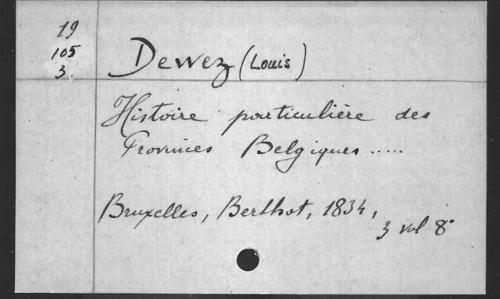 19
105
3
Dewez (Louis)
Histoire particulière des
Provinces Belgiques .....
Bruxelles, Berthot, 1834,
3 vol 8°